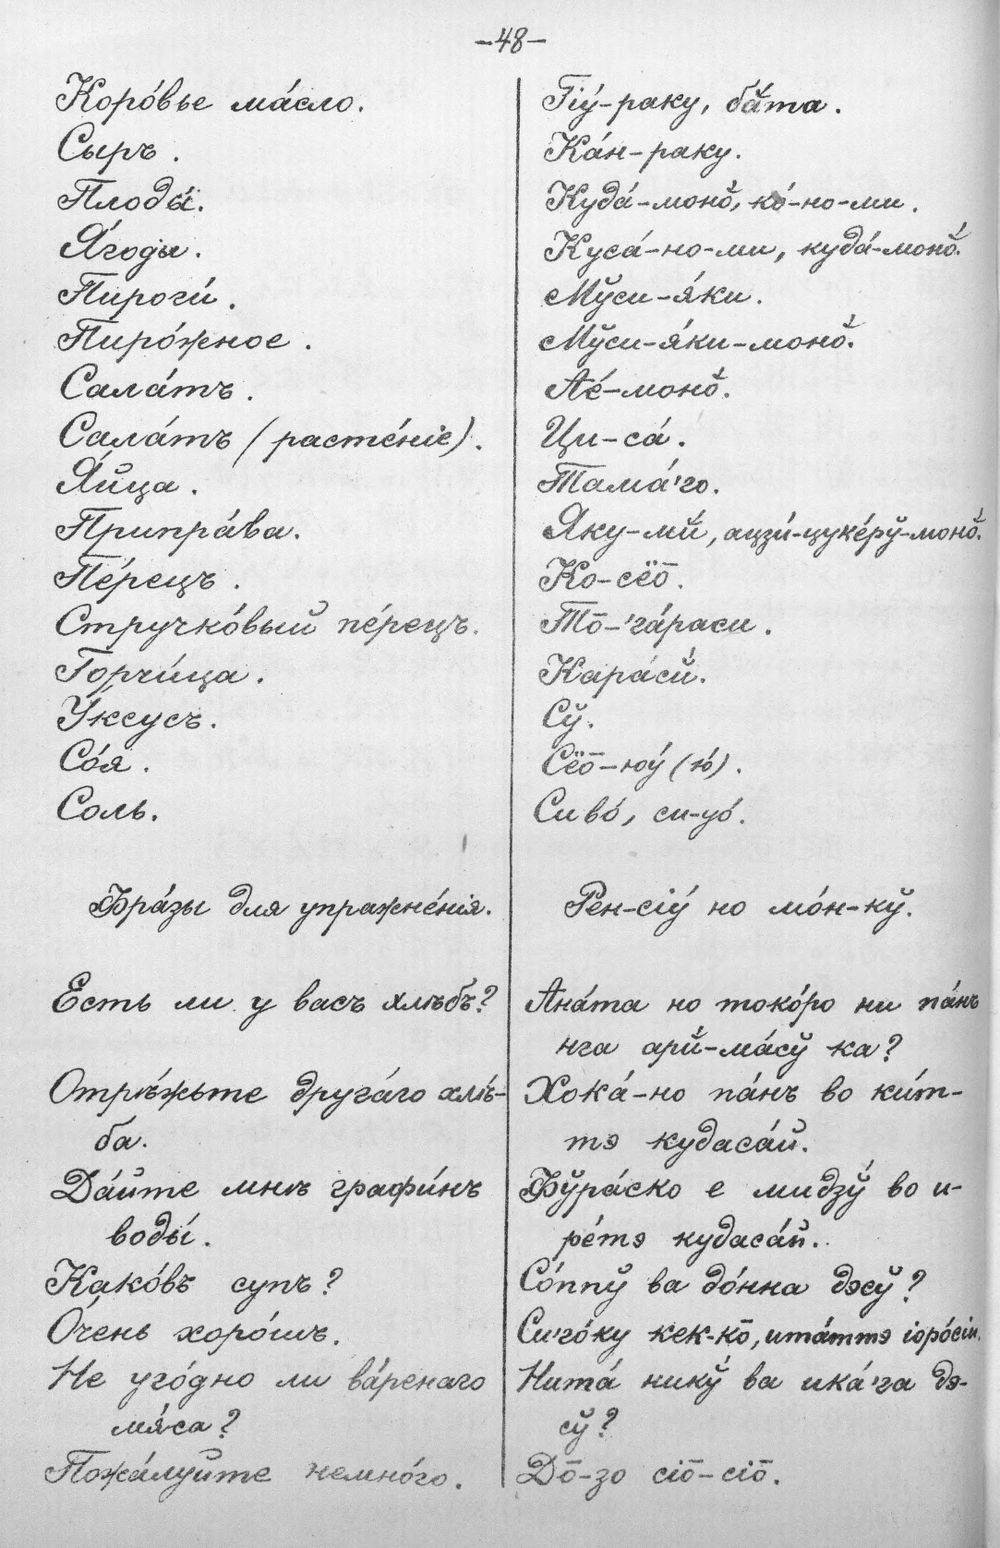 –48–
Коро́вье ма́сло. Гіу́-раку, бӑта.
Сыръ. Ка́н-раку.
Плоды́. Куда́-моно̆́, ко́-но-ми.
Я́годы. Куса́-но-ми, куда́-моно̆́.
Пироги́. Мўси-я́ки.
Пиро́жное. Мўси-я́ки-моно̆́.
Сала́тъ. Ае́-моно̆́.
Сала́тъ (расте́ніе). Ци-са́.
Я́йца. Тама́'го.
Припра́ва. Яку-мй́, аззи́-цуке́рў-моно̆́.
Пе́рецъ. Ко-сёо̄.
Стручко́вый пе́рецъ. То̄-'га́раси.
Горчи́ца. Кара́сй́.
У́ксусъ. Сў.
Со́я. Сёо̄-юу́ (ю́).
Соль. Сиво́, си-уо́.
Фра́зы для упражне́нія. Рен-сіу́ но мо́н-кў.
Есть ли у васъ хлѣбъ? Ана́та но токо́ро ни па́нъ
нга арй́-ма́сў ка?
Отрѣ́жьте друга́го хлѣ́- Хока́-но па́нъ во ки́т-
ба. тэ кудаса́й.
Да́йте мнѣ графи́нъ Фўра́ско е мидзў́ во и-
воды́. ре́тэ кудаса́й.
Како́въ супъ? Со́ппў ва до́нна дэсў?
О́чень хоро́шъ. Си'го́ку кек-ко̄, ита́ттэ іоро́сіи.
Не уго́дно ли ва́ренаго Нита́ никў́ ва ика́'га дэ-
мя́са? сў?
Пожа́луйте немно́го. До̄-зо сіо̄-сіо̄.